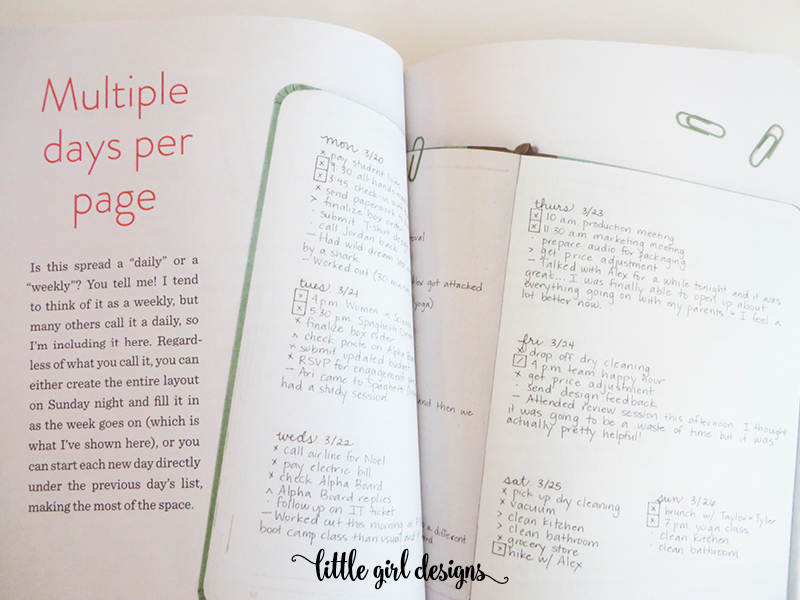 Multiple
days per
page
Is this spread a “daily” or a
“weekly”? You tell me! I tend
to think of it as a weekly, but
many others call it a daily, so
I’m including it here. Regard-
less of what you call it, you can
either create the entire layout
on Sunday night and fill it in
as the week goes on (which is
what I’ve shown here), or you
can start each new day directly
under the previous day’s list,
making the most of the space.
mon 3/20
x pay student
x 9:30 all-hands
x 3:45 check-in
x send paperwork
> finalize box order
· submit T-shirt
· call Jordan back
– Had wild dream
by a shark
– Worked out (30 min
tues 3/21
x 4 p.m. Women in
x 5:30 p.m. Spaghetti
x finalize box order
^ check posts on Alpha
x submit updated budget
x RSVP for engagement
– Ari came to Spaghetti
had a study session
weds 3/22
x call airline for Noel
x pay electric bill
x check Alpha Board
^ Alpha Board replies
· follow up on IT ticket
– Worked out this morning
boot camp class than usual and
got attacked
yoga)
and then we
a different
thurs 3/23
x 10 a.m. production meeting
x 11:30 a.m. marketing meeting
· prepare audio for packaging
> get price adjustment
– Talked with Alex for a while tonight and it was
great... I was finally able to open up about
everything going on with my parents > I feel a
lot better now.
fri 3/24
x drop off dry cleaning
/ 4 p.m. team happy hour
x get price adjustment
· send design feedback
– Attended review session this afternoon. I thought
it was going to be a waste of time but it was
actually pretty helpful!
sat 3/25
x pick up dry cleaning
x vacuum
> clean kitchen
> clean bathroom
x grocery store
x hike w/ Alex
sun 3/26
x brunch w/ Taylor + Tyler
x 7 p.m. yoga class
· clean kitchen
· clean bathroom
little girl designs